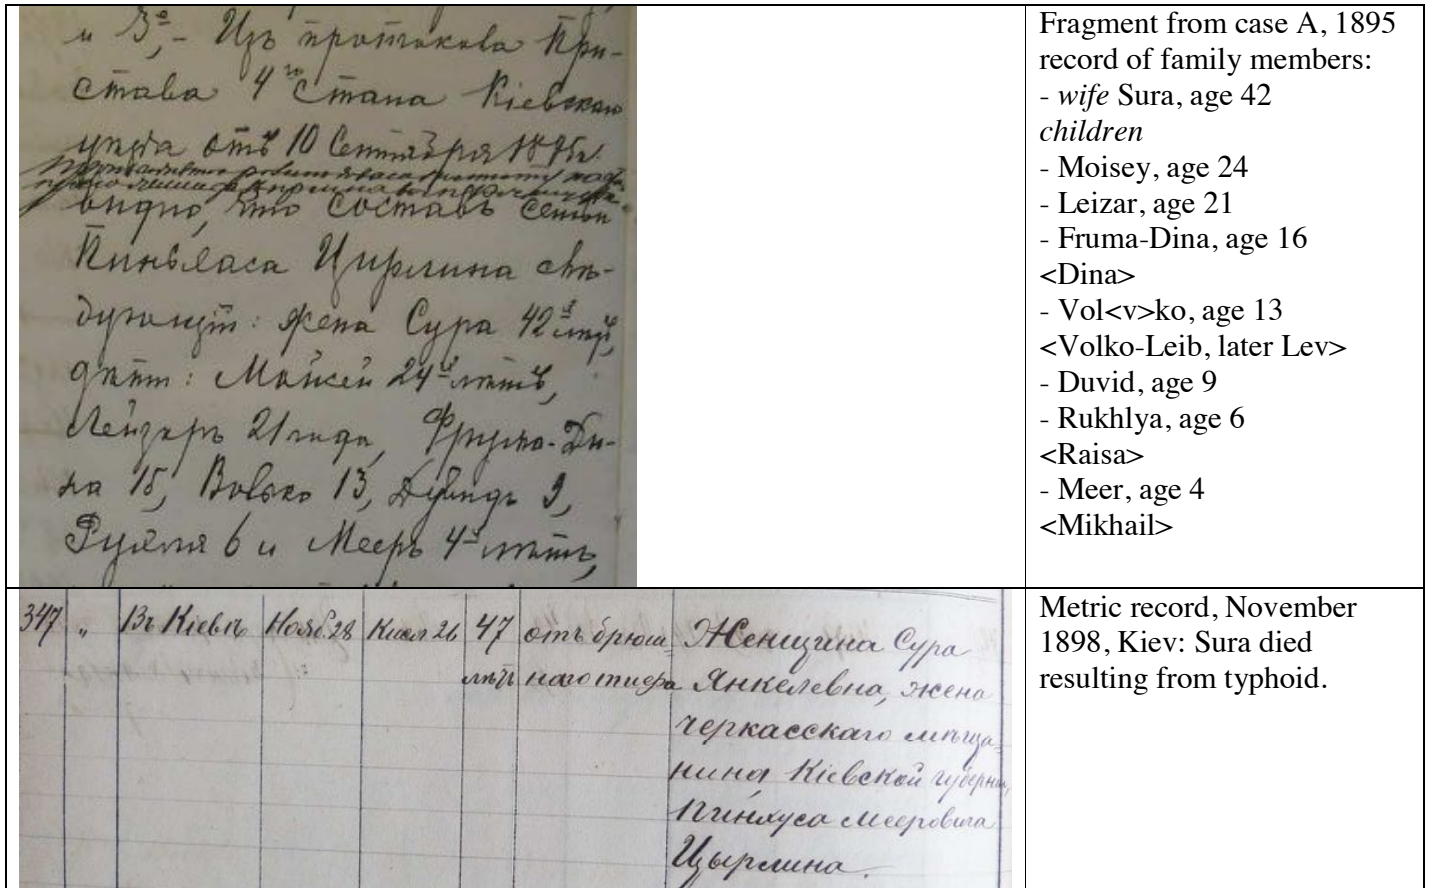 и 3е,- Изъ протокола При-
става 4го Стана Кіевскаго
уѣзда отъ 10 Сентября 1895г.
видно, что составъ семьи
Пинхаса Цирлина слѣ-
дующій: жена Сура 42хъ лѣтъ,
дѣти: Мойсей 24хъ лѣтъ,
Лейзаръ 21 года, Фрума-Ди-
на 15, Волько 13, Дувидъ 9,
Рухля 6 и Мееръ 4хъ лѣтъ,
Fragment from case A, 1895
record of family members:
- wife Sura, age 42
children
- Moisey, age 24
- Leizar, age 21
- Fruma-Dina, age 16
<Dina>
- Vol<v>ko, age 13
<Volko-Leib, later Lev>
- Duvid, age 9
- Rukhlya, age 6
<Raisa>
- Meer, age 4
<Mikhail>
347 „ Въ Кіевѣ Нояб. 28 Кисл 26 47 отъ брюш- Женщина Сура
лѣтъ ного тифа Янкелевна, жена
черкасскаго мѣща-
нина, Кіевской губерніи,
Пинхуса Мееровича
Цырлина.
Metric record, November
1898, Kiev: Sura died
resulting from typhoid.